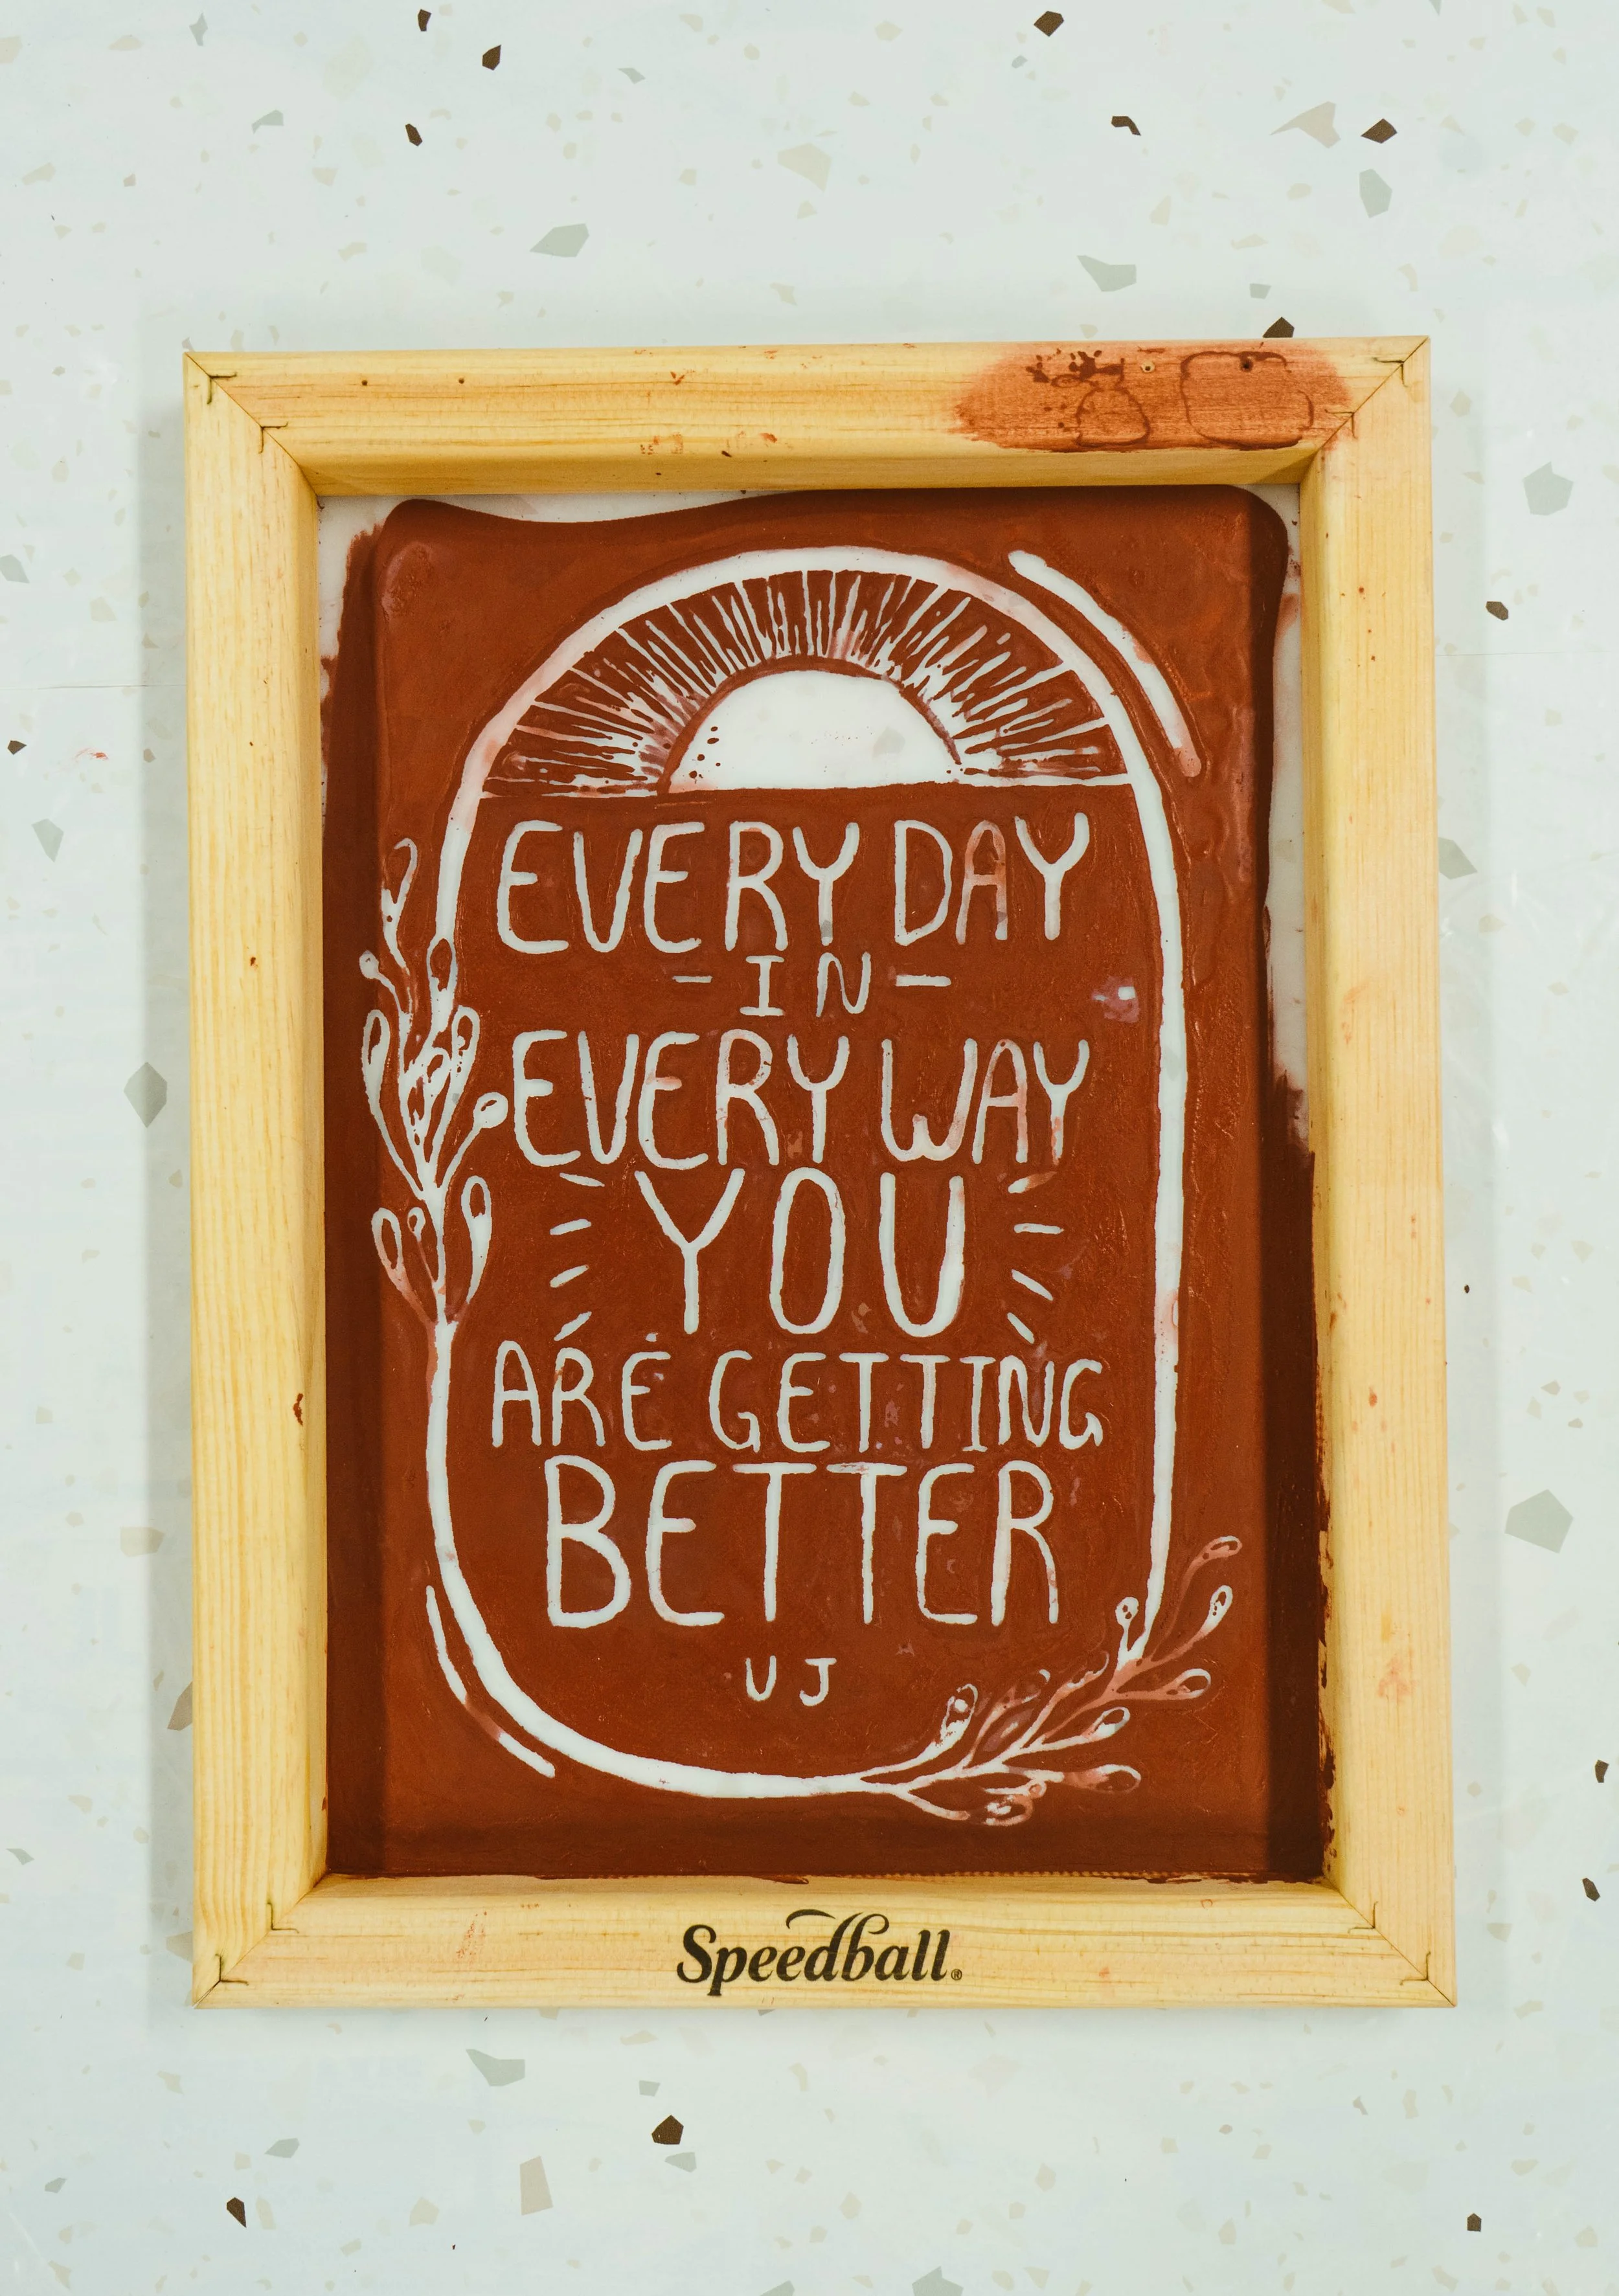 EVERY DAY
- IN -
EVERY WAY
YOU
ARE GETTING
BETTER
UJ
Speedball®